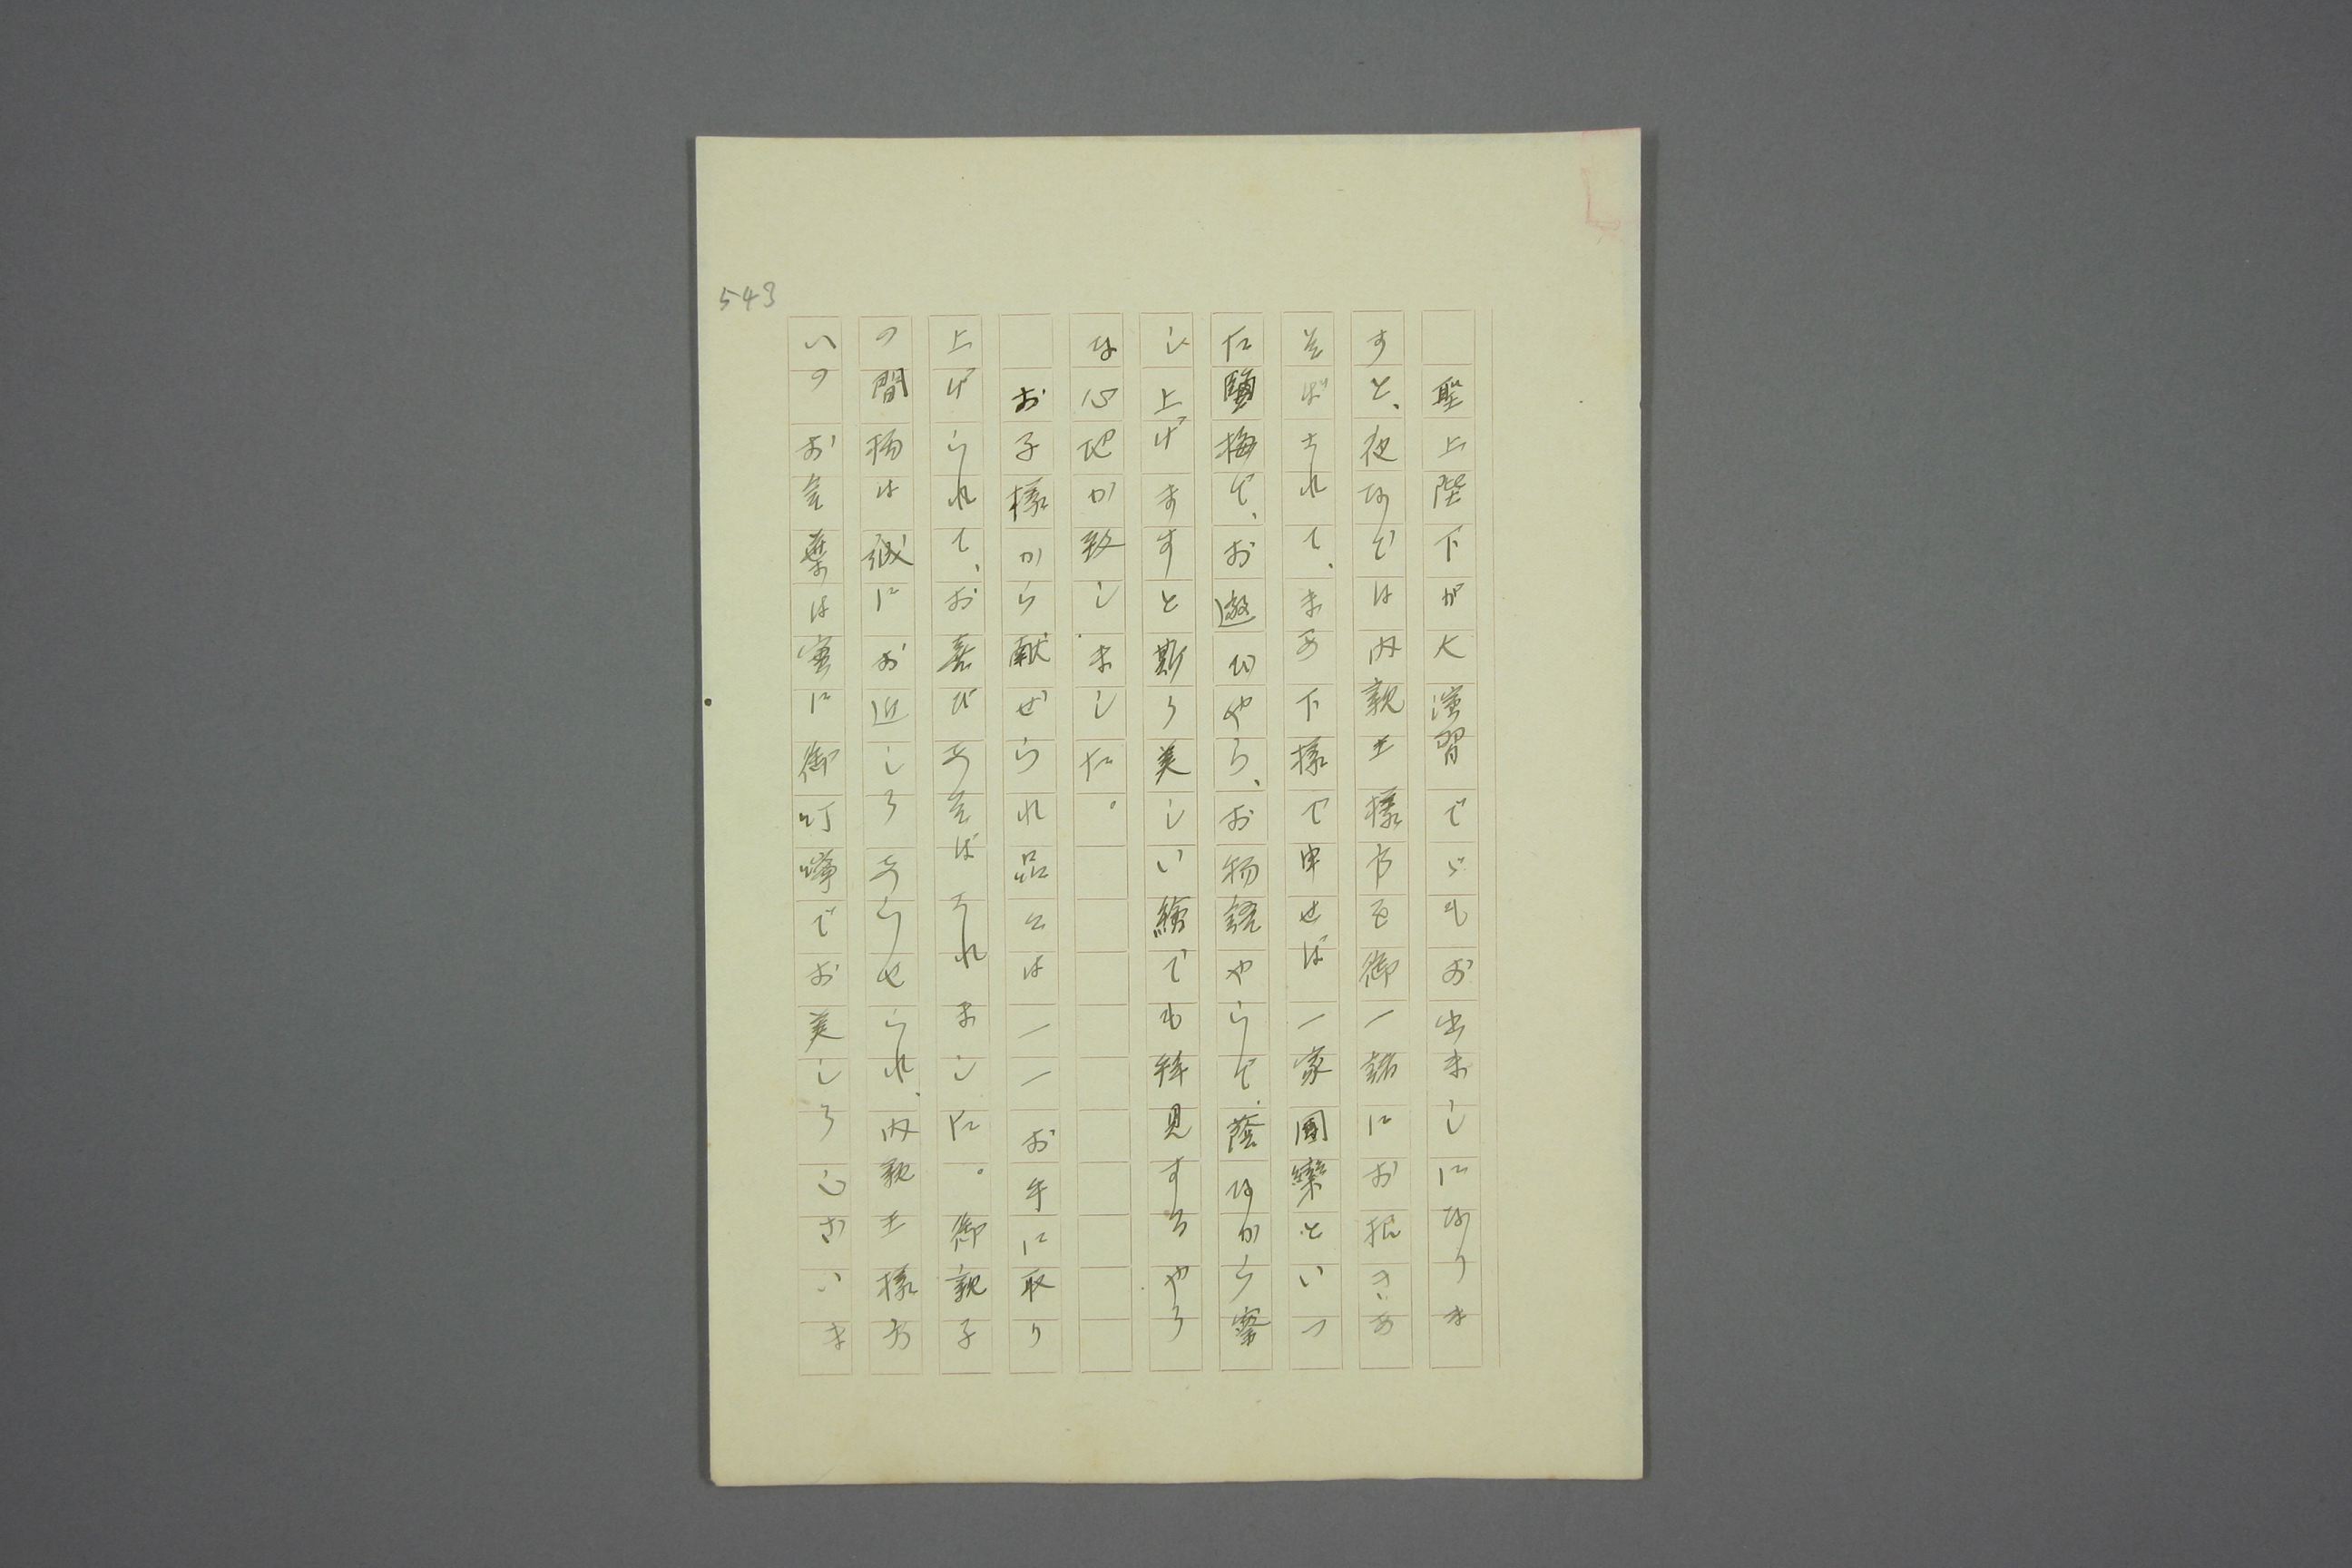 543
聖上陛下が大演習でゞもお出ましになりま
すと、夜などは内親王様方を御一緒にお招きあ
そばされて、まあ下様で申せば一家團欒といつ
た鹽梅で、お遊びやら、お物語やらで、蔭ながら察
し上げますと斯う美しい繪でも拝見するやう
な心地が致しました。
お子様から献ぜられ品々は一一お手に取り
上げられて、お喜びあそばされました。御親子
の間柄は誠にお近しうあらせられ、内親王様方
いのお言葉は實に御叮嚀でお美しうございま